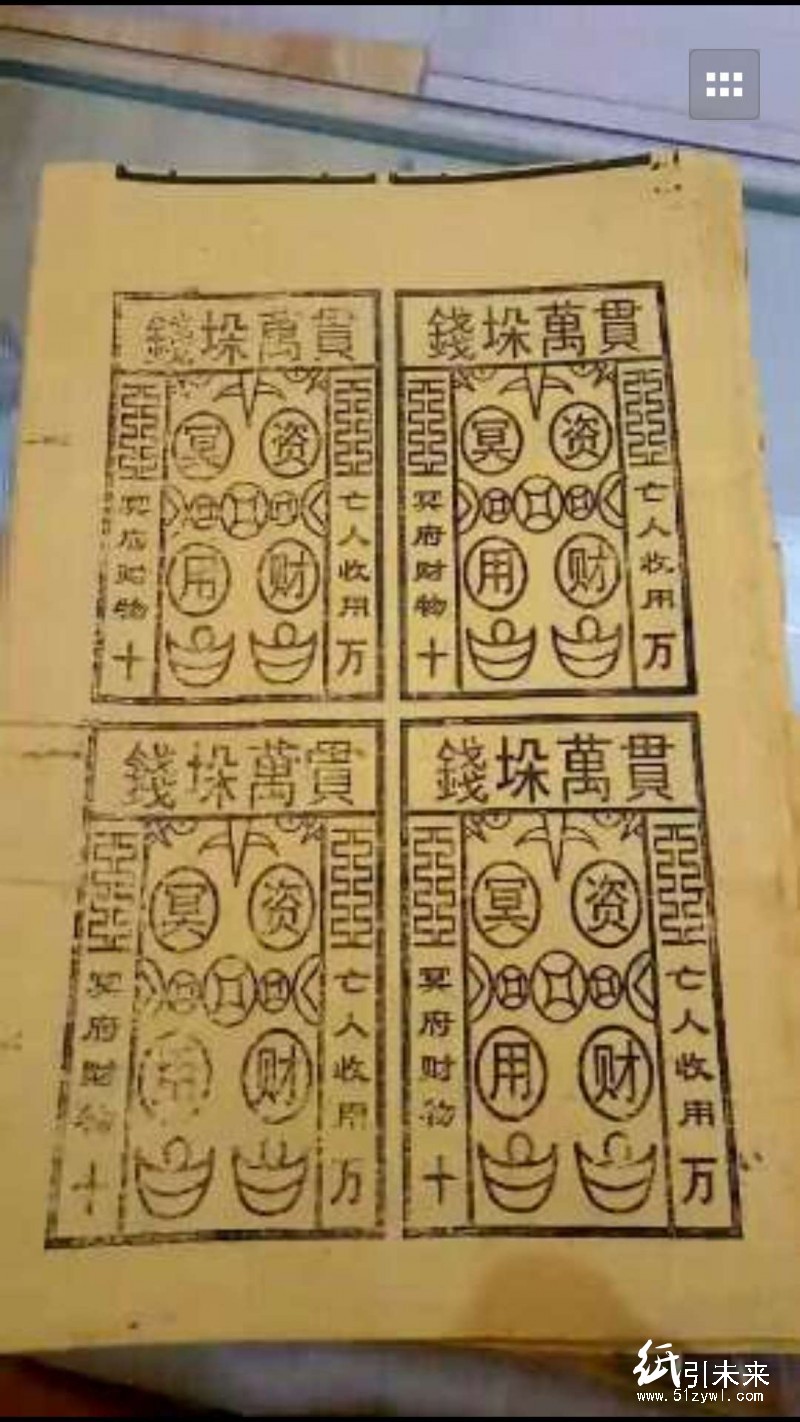 錢垛萬貫
冥府财物
冥资
用财
亡人收用
十万
錢垛萬貫
冥府财物
冥资
用财
亡人收用
十万
錢垛萬貫
冥府财物
冥资
用财
亡人收用
十万
錢垛萬貫
冥府财物
冥资
用财
亡人收用
十万
纸引未来
www.51zywl.com